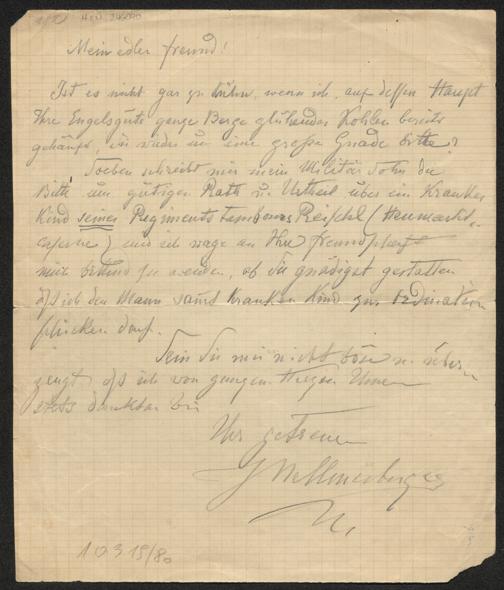 Mein edler Freund!
Ist es nicht gar zu kühn, wenn ich, auf dessen Haupt
Ihre Engelsgüte ganze Berge glühender Kohlen bereits
gehäuft, wieder um eine große Gnade bitte?
Soeben schreibt mir mein Militär Sohn die
Bitte um gütigen Rath u. Urtheil über ein Krankes
Kind seines Regiments Tambours Reischl (Heumarkt-
caserne) und ich wage an Ihre Freundschaft
mich zu wenden, ob Sie gnädigst gestatten
daß ich den Mann samt Kranken Kind zur Ordination
schicken darf.
Sein Sie mir nicht böse u. über-
zeugt, daß ich von ganzem Herzen Ihnen
stets dankbar bin
Ihr getreuer
10315/80